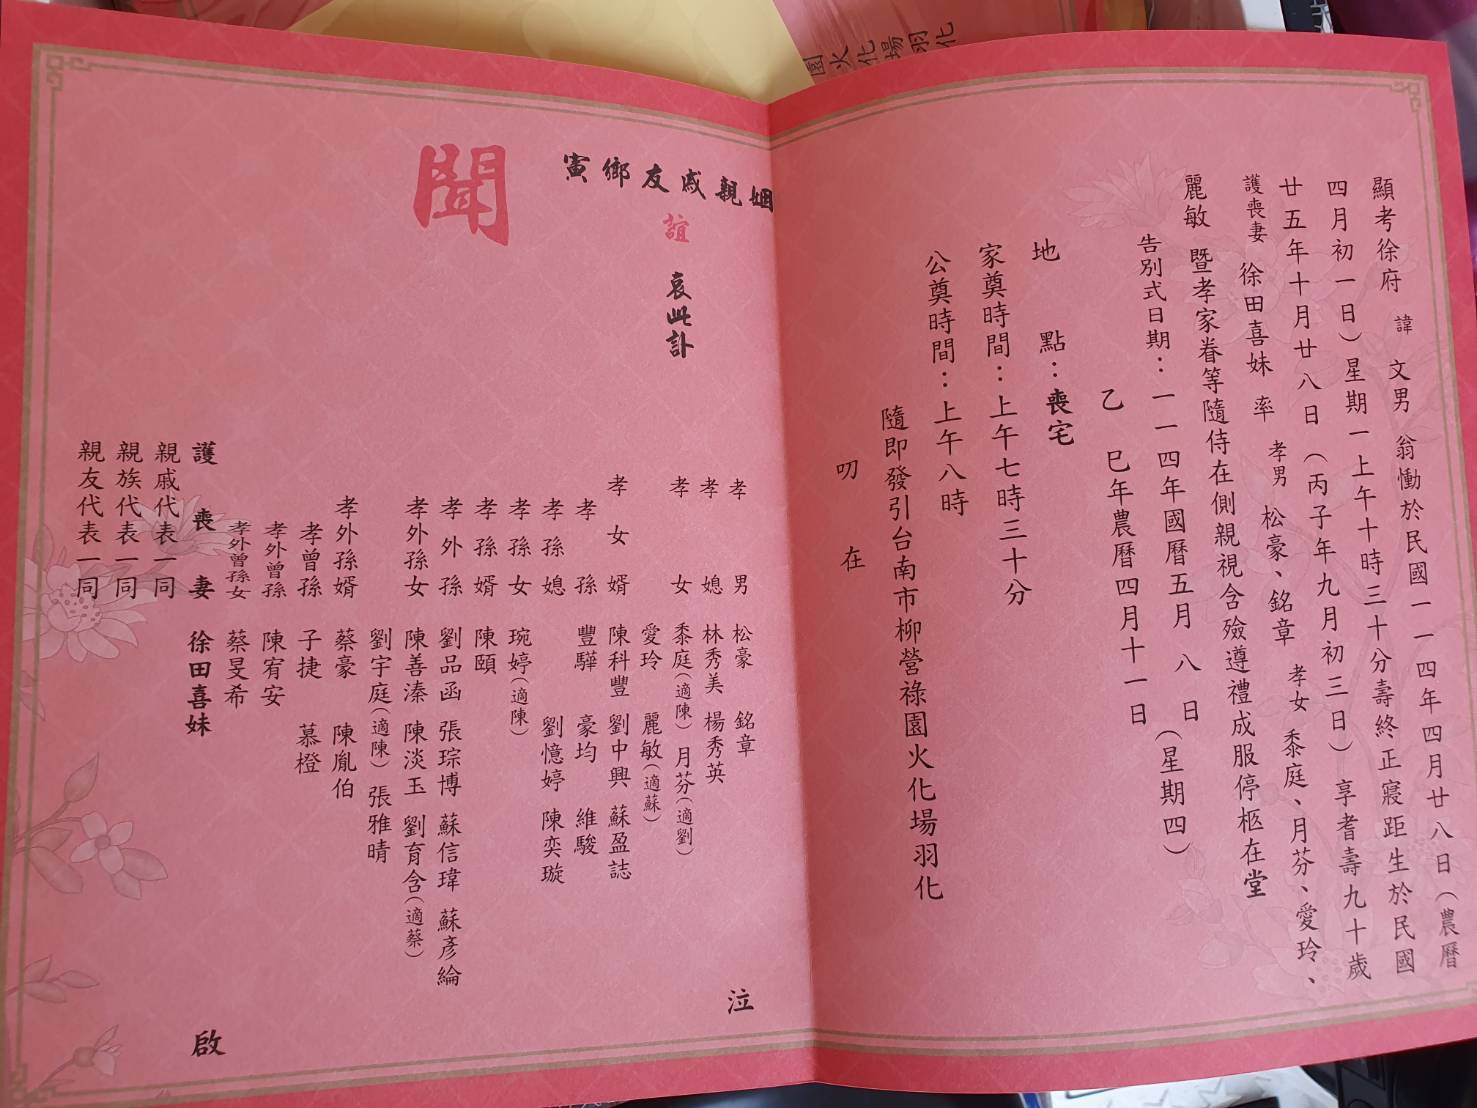 顯考徐府 諱 文男 翁慟於民國一一四年四月廿八日（農曆
四月初一日）星期一上午十時三十分壽終正寢距生於民國
廿五年十月廿八日（丙子年九月初三日）享耆壽九十歲
護喪妻 徐田喜妹 率 孝男 松豪、銘章 孝女 黍庭、月芬、愛玲、
麗敏 暨孝家眷等隨侍在側親視含殮遵禮成服停柩在堂
告別式日期：一一四年國曆五月 八 日（星期四）
乙 巳年農曆四月十一日
地 點：喪宅
家奠時間：上午七時三十分
公奠時間：上午八時
隨即發引台南市柳營祿園火化場羽化
叨 在
姻親戚友鄉寅
誼
哀此訃
聞
孝 男 松豪 銘章 泣
孝 媳 林秀美 楊秀英
孝 女 黍庭（適陳）月芬（適劉）
愛玲 麗敏（適蘇）
孝 女 婿 陳科豐 劉中興 蘇盈誌
孝 孫 豐驊 豪均 維駿
孝 孫 媳 劉憶婷 陳奕璇
孝 孫 女 琬婷（適陳）
孝 孫 婿 陳頤
孝 外 孫 劉品函 張琮博 蘇信瑋 蘇彥綸
孝外孫女 陳善溱 陳淡玉 劉育含（適蔡）
劉宇庭（適陳）張雅晴
孝外孫婿 蔡豪 陳胤伯
孝曾孫 子捷 慕橙
孝外曾孫 陳宥安
孝外曾孫女 蔡旻希
護 喪 妻 徐田喜妹 啟
親戚代表一同
親族代表一同
親友代表一同
園
火
化
場
羽
化